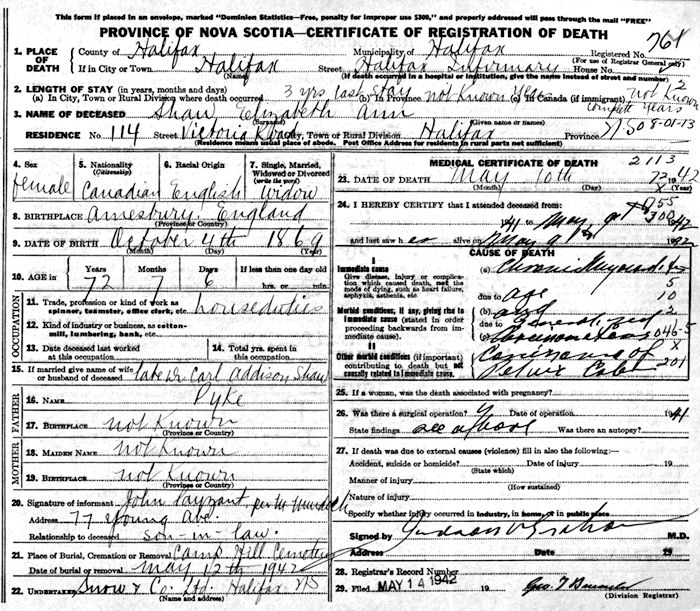 This form if placed in an envelope, marked "Dominion Statistics—Free, penalty for improper use $300," and properly addressed will pass through the mail "FREE"
PROVINCE OF NOVA SCOTIA—CERTIFICATE OF REGISTRATION OF DEATH
1. PLACE OF DEATH County of Halifax Municipality of Halifax Registered No. 761
(For use of Registrar General only)
If in City or Town Halifax Street Halifax Infirmary House No.
(Name) (If death occurred in a hospital or institution, give the name instead of street and number)
2. LENGTH OF STAY (in years, months and days)
(a) In City, Town or Rural Division where death occurred 3 yrs last stay (b) In Province not Known (c) In Canada (if immigrant) not Known
3. NAME OF DECEASED Shaw Elizabeth Ann
(Surname) (Given name or names)
RESIDENCE No. 114 Street Victoria Road City, Town or Rural Division Halifax Province NS 08-01-13
(Residence means usual place of abode. Post Office Address for residents in rural parts not sufficient)
4. Sex female
5. Nationality (Citizenship) Canadian
6. Racial Origin English
7. Single, Married, Widowed or Divorced (write the word) Widow
8. BIRTHPLACE Amesbury, England
(Province or Country)
9. DATE OF BIRTH October 4th 1869
(Month) (Day) (Year)
10. AGE in Years 72 Months 7 Days 6 If less than one day old hrs. or min.
OCCUPATION
11. Trade, profession or kind of work as spinner, teamster, office clerk, etc. houseduties
12. Kind of industry or business, as cotton-mill, lumbering, bank, etc.
13. Date deceased last worked at this occupation
14. Total yrs. spent in this occupation
15. If married give name of wife or husband of deceased late Dr Carl Addison Shaw
FATHER
16. NAME Pyke
17. BIRTHPLACE not Known
(Province or Country)
MOTHER
18. MAIDEN NAME not Known
19. BIRTHPLACE not Known
(Province or Country)
20. Signature of informant John Payzant, per M Murdoch
Address 77 Young Ave.
Relationship to deceased son-in-law.
21. Place of Burial, Cremation or Removal Camp Hill Cemetery
Date of burial or removal May 12th 1942
22. UNDERTAKER Snow & Co. Ltd. Halifax NS
(Name and address)
MEDICAL CERTIFICATE OF DEATH 2113
23. DATE OF DEATH May 10th 1942
(Month) (Day)
24. I HEREBY CERTIFY that I attended deceased from:
41 to May 9 1942
and last saw her alive on May 9 1942
CAUSE OF DEATH
I
Immediate cause
Give disease, injury or complication which caused death, not the mode of dying, such as heart failure, asphyxia, asthenia, etc
(a) Chronic
due to age
Morbid conditions, if any, giving rise to immediate cause (stated in order proceeding backwards from immediate cause).
(b) and
due to
(c) 046-5
II
Other morbid conditions (if important) contributing to death but not causally related to immediate cause.
Carcinoma of 201
25. If a woman, was the death associated with pregnancy?
26. Was there a surgical operation? Date of operation 1941
State findings see above Was there an autopsy?
27. If death was due to external causes (violence) fill in also the following:
Accident, suicide or homicide? Date of injury 19
(State which)
Manner of injury
(How sustained)
Nature of injury
Specify whether injury occurred in industry, in home, or in public place
Signed by Judson V Graham M.D.
Address Date 19
28. Registrar's Record Number
29. Filed MAY 14 1942 19
(Division Registrar)